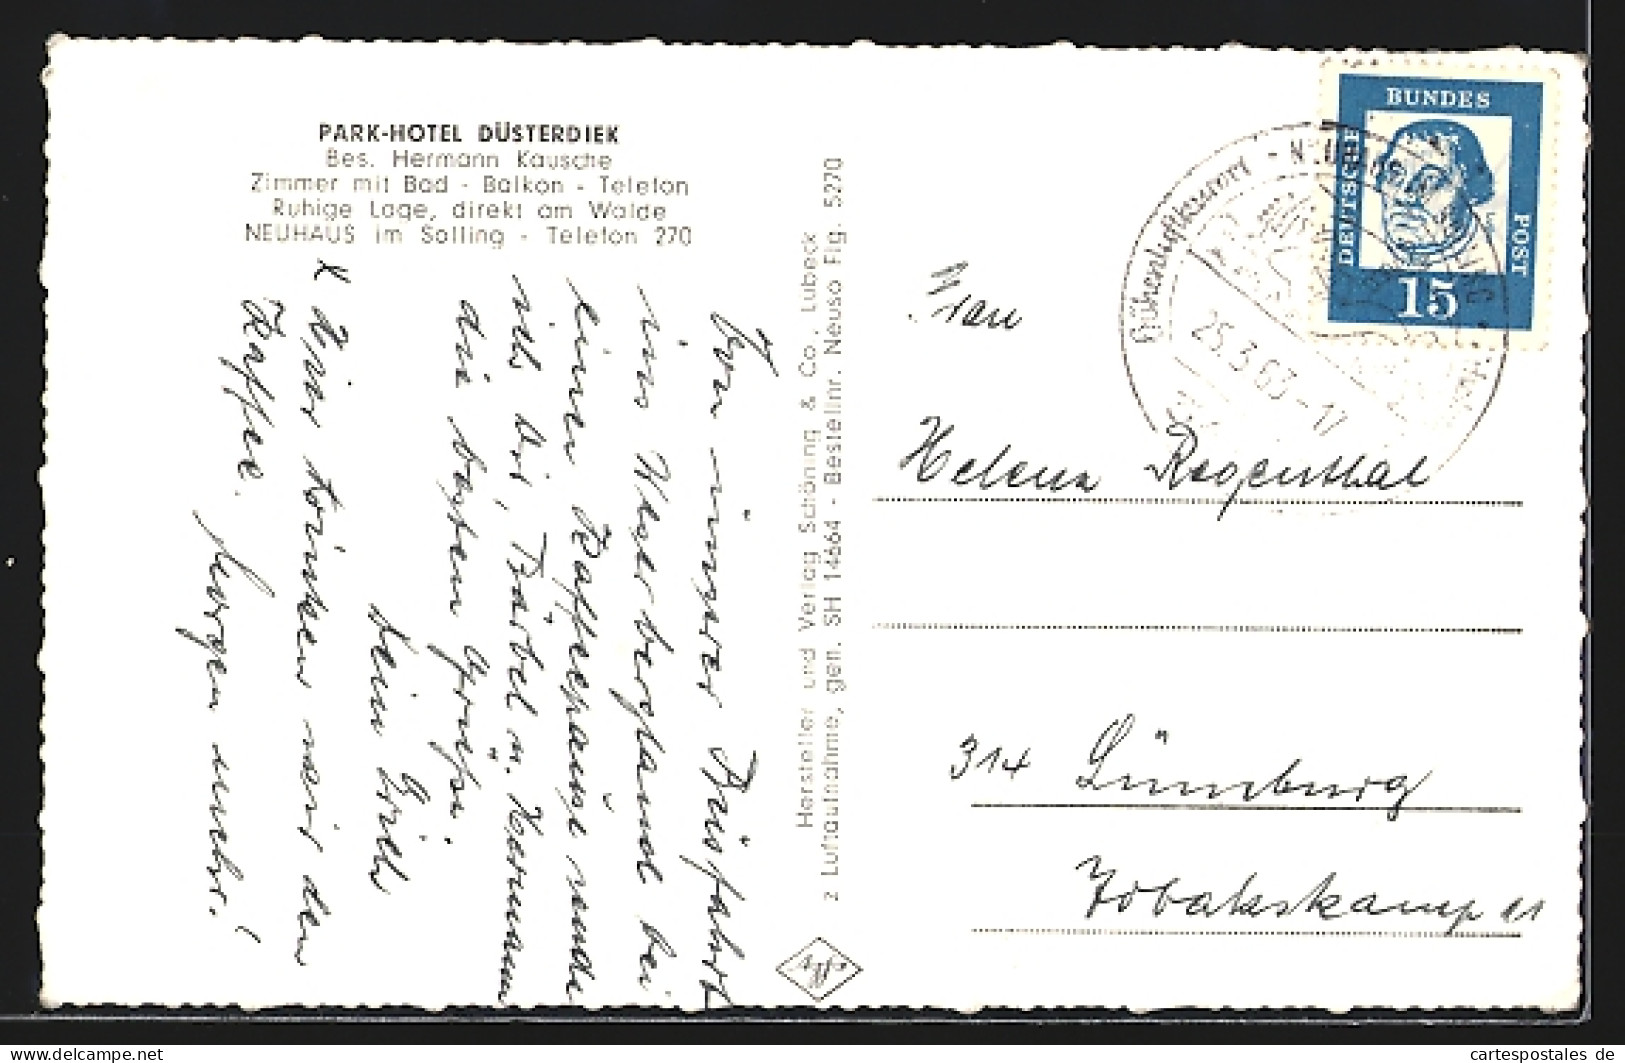 PARK-HOTEL DÜSTERDIEK
Bes. Hermann Kausche
Zimmer mit Bad - Balkon - Telefon
Ruhige Lage, direkt am Walde
NEUHAUS im Solling - Telefon 270
Von unserer
ins Weserbergland bei
einer Kaffeepause
sich bei, Bärbel u. Hermann
die besten Grüße.
Dein
Wir trinken erst den
Kaffee. Morgen mehr!
Hersteller und Verlag Schöning & Co., Lübeck
z Luftaufnahme, gen. SH 14664 - Bestellnr. Neuso Flg. 5270
BUNDES
DEUTSCHE
POST
15
Höhenluftkurort
25.3.63-17
Frau
Helene Regenthal
314 Lüneburg
11
www.cartespostales.eu
cartespostales de